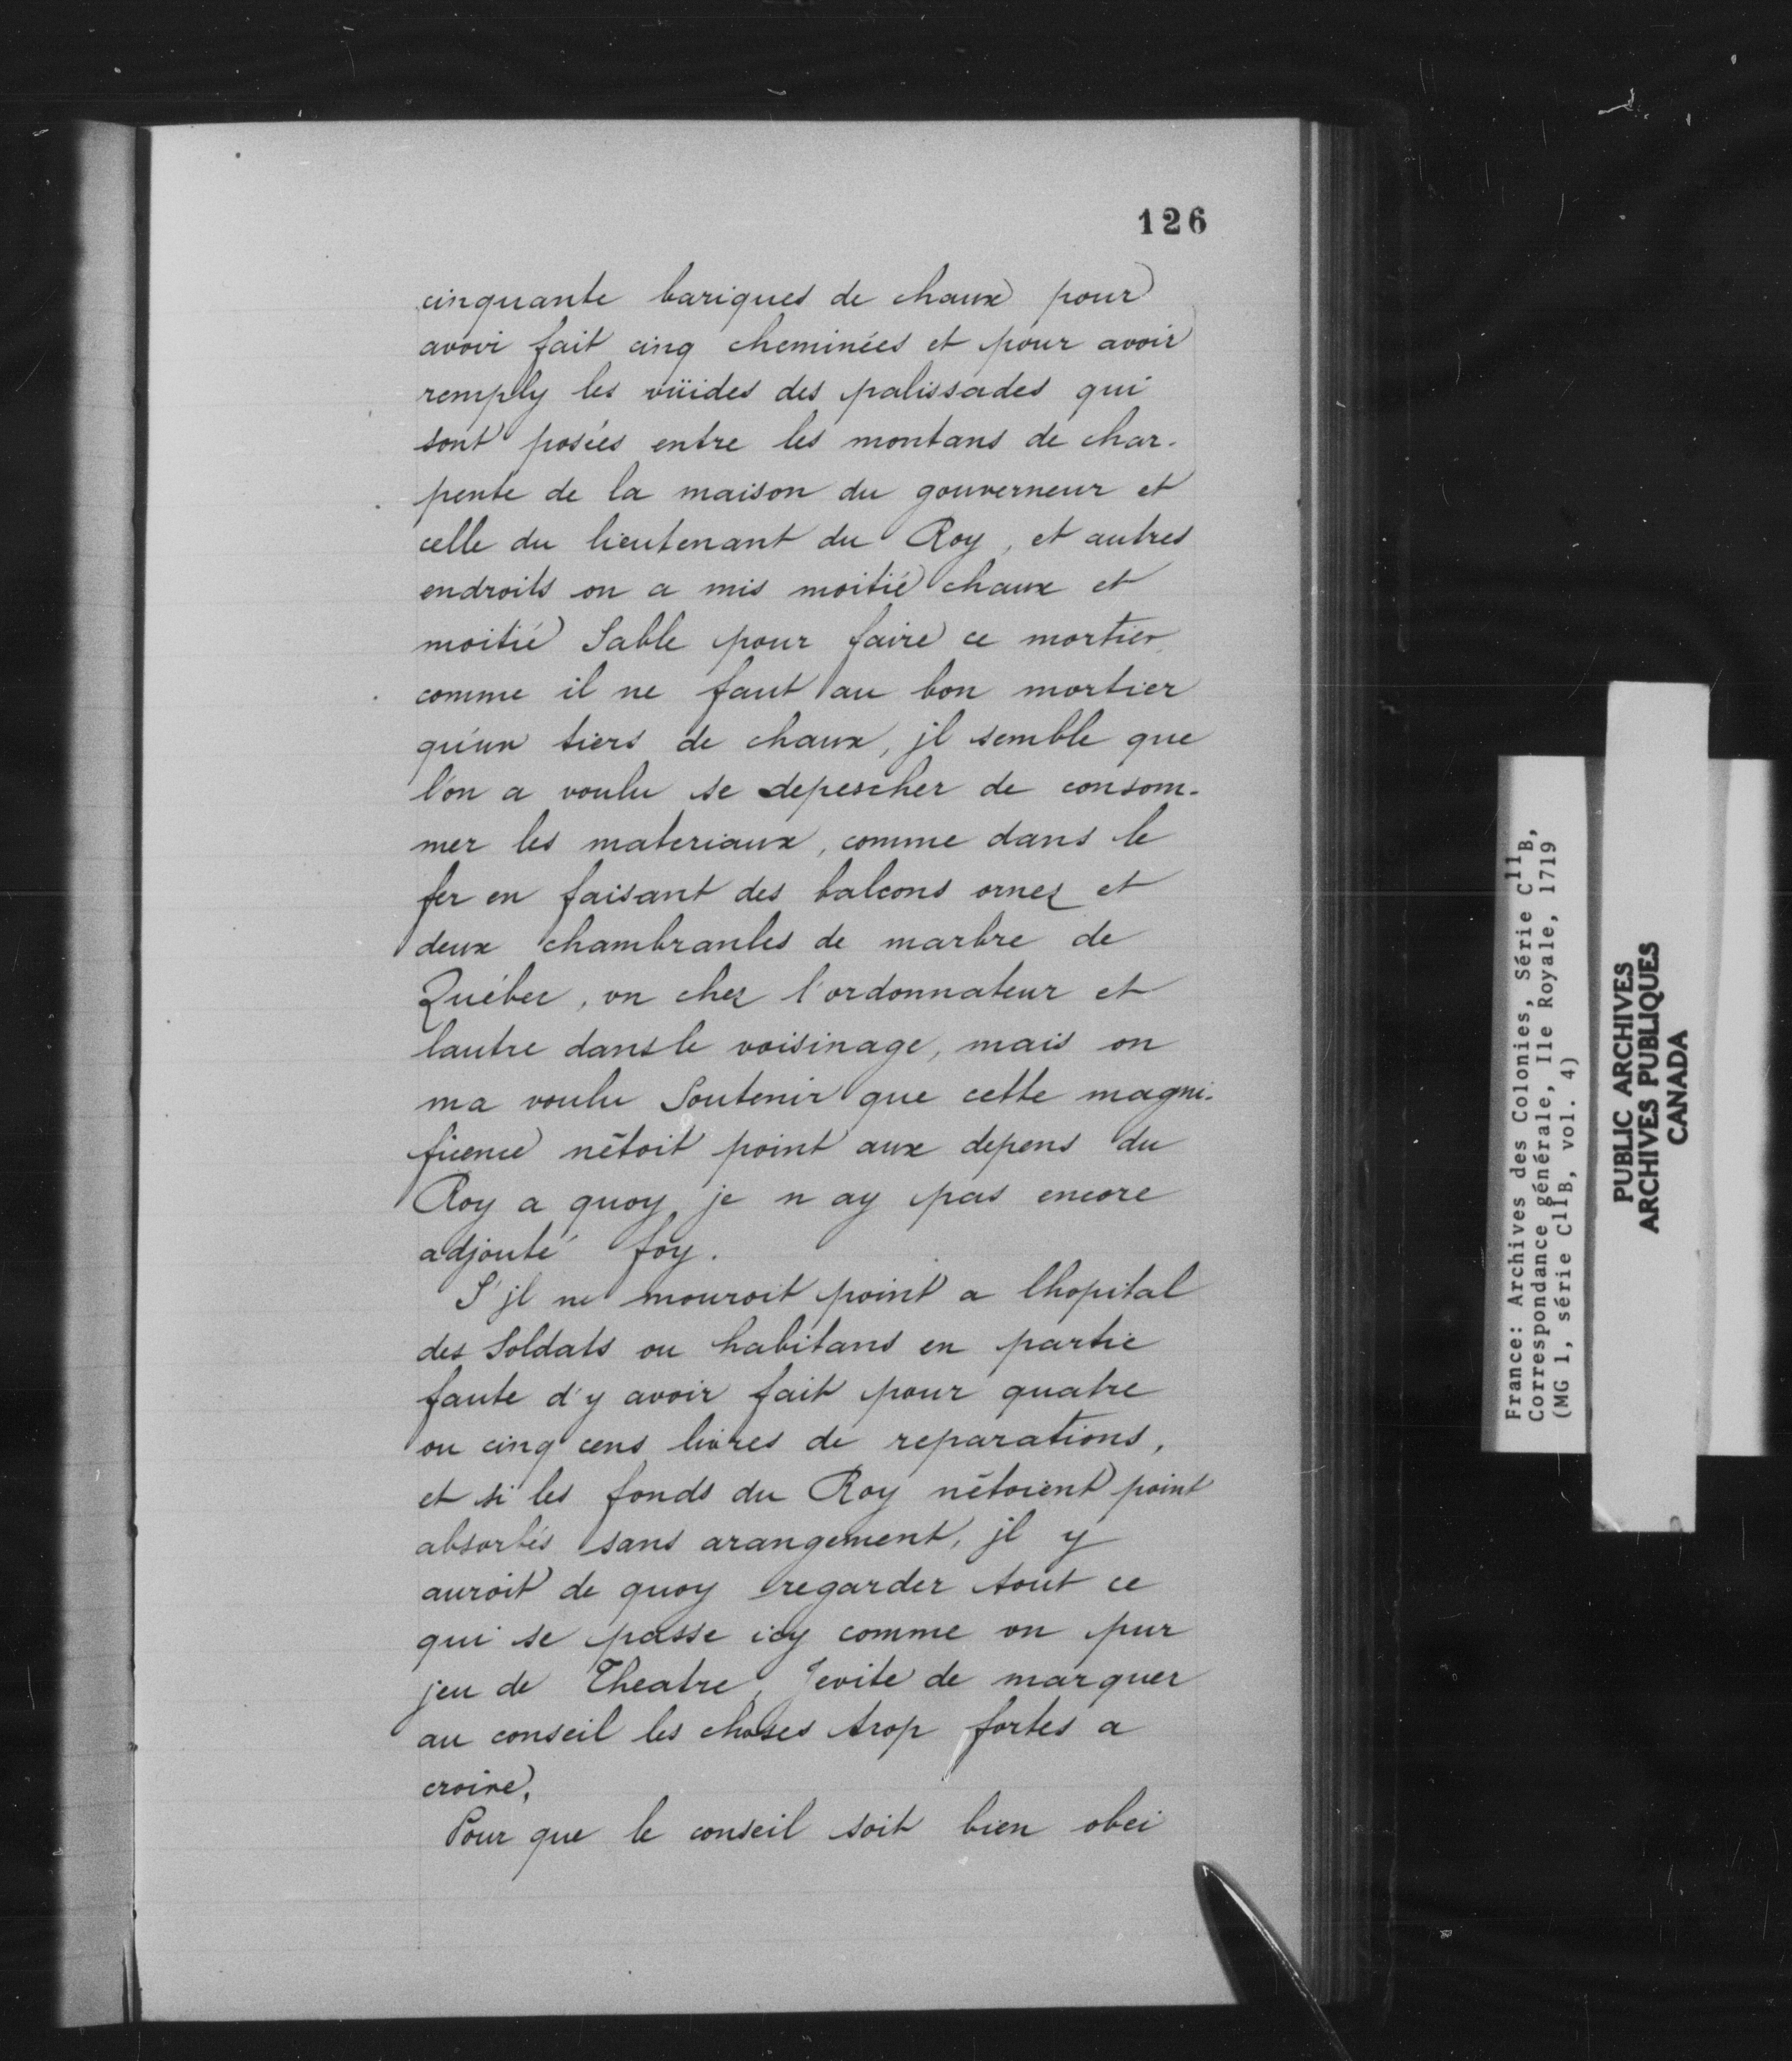 126
cinquante bariques de chaux pour
avoir fait cinq cheminées et pour avoir
remply les vüides des palissades qui
sont posées entre les montans de char-
pente de la maison du gouverneur et
celle du lieutenant du Roy, et autres
endroits on a mis moitié chaux et
moitié Sable pour faire ce mortier
comme il ne faut au bon mortier
qu'un tiers de chaux, jl semble que
l'on a voulu se depescher de consom-
mer les materiaux, comme dans le
fer en faisant des balcons ornez et
deux chambranles de marbre de
Québec, un chez l'ordonnateur et
lautre dans le voisinage, mais on
ma voulu Soutenir que cette magni-
ficence nétoit point aux depens du
Roy a quoy je n ay pas encore
adjouté foy.
S'jl ne mouroit point a lhopital
des Soldats ou habitans en partie
faute d'y avoir fait pour quatre
ou cinq cens livres de reparations,
et si les fonds du Roy nétoient point
absorbés sans arangement, jl y
auroit de quoy regarder tout ce
qui se passe icy comme un pur
jeu de Theatre, Jevite de marquer
au conseil les choses trop fortes a
croire,
Pour que le conseil soit bien obei
France: Archives des Colonies, Série C11B,
Correspondance générale, Ile Royale, 1719
(MG 1, série C11B, vol. 4)
PUBLIC ARCHIVES
ARCHIVES PUBLIQUES
CANADA